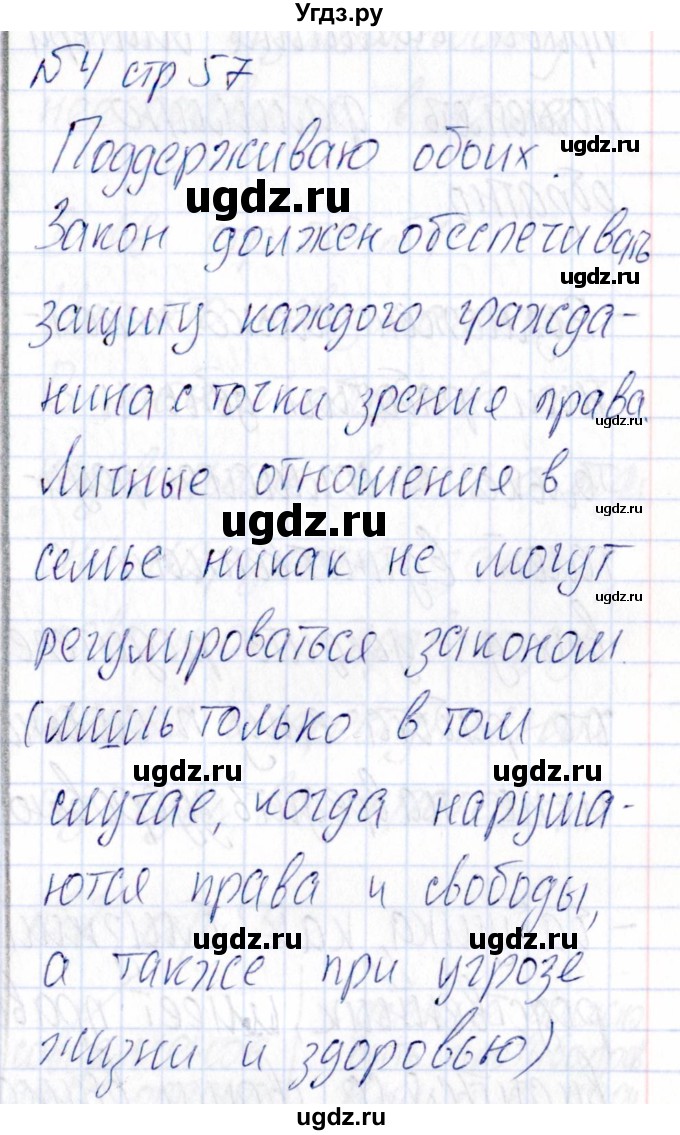 Угдз.ру
№4 стр 57
Поддерживаю обоих.
ugdz.ru
ugdz.ru
Закон должен обеспечивать
ugdz.ru
защиту каждого гражда-
нина с точки зрения права.
ugdz.ru
Личные отношения в
ugdz.ru
ugdz.ru
семье никак не могут
ugdz.ru
регулироваться законом
(лишь только в том
ugdz.ru
ugdz.ru
случае, когда наруша-
ются права и свободы,
ugdz.ru
ugdz.ru
а также при угрозе
жизни и здоровью)
ugdz.ru